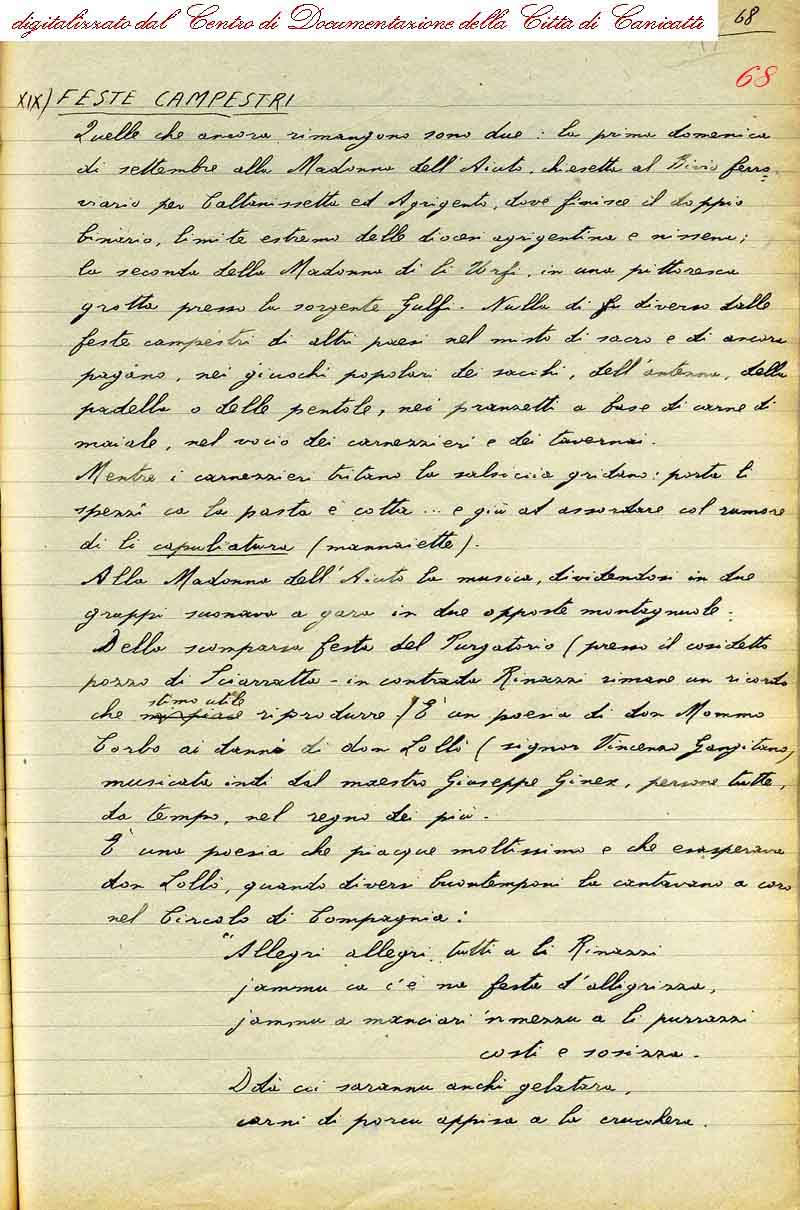 digitalizzato dal Centro di Documentazione della Città di Canicattì
68
68
XIX) FESTE CAMPESTRI
Quelle che ancora rimangono sono due: la prima domenica
di settembre alla Madonna dell'Aiuto, chiesetta al Bivio ferro-
viario per Caltanissetta ed Agrigento, dove finisce il doppio
binario, limite estremo delle diocesi agrigentina e nissena;
la seconda della Madonna di li Urfi, in una pittoresca
grotta presso la sorgente Gulfi. Nulla di diverso dalle
feste campestri di altri paesi nel misto di sacro e di ancora
pagano, nei giuochi popolari dei sacchi, dell'antenna, della
padella o delle pentole, nei pranzetti a base di carne di
maiale, nel vocio dei carnezzieri e dei tavernai.
Mentre i carnezzieri tritano la salsiccia gridano: porta li
spezzi ca la pasta è cotta... e giù ad assordare col rumore
di li capuliatura (mannaiette).
Alla Madonna dell'Aiuto la musica, dividendosi in due
gruppi suonava a gara in due opposte montagnuole.
Della scomparsa festa del Purgatorio (presso il cosidetto
pozzo di Sciarratta - in contrada Rinazzi rimane un ricordo
che stimo utile riprodurre) È un poesia di don Mommo
Corbo ai danni di don Lollò (signor Vincenzo Gangitano,
musicata indi dal maestro Giuseppe Ginex, persone tutte,
da tempo, nel regno dei più.
È una poesia che piacque moltissimo e che esasperava
don Lollò, quando diversi buontemponi la cantavano a coro
nel Circolo di Compagnia:
"Allegri allegri, tutti a li Rinazzi
jammu ca c'è na festa d'alligrizza,
jammu a manciari 'nmezzu a li purrazzi
costi e sosizza.
Ddà cci sarannu anchi gelatara,
carni di porcu appisa a la